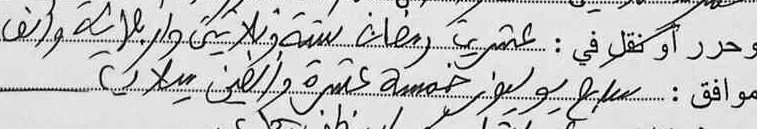 وحرر أو نقل في : عشرين رمضان ستة وثلاثين واربعمائة والف
موافق : سابع يوليوز خمسة عشرة والفين ميلادية